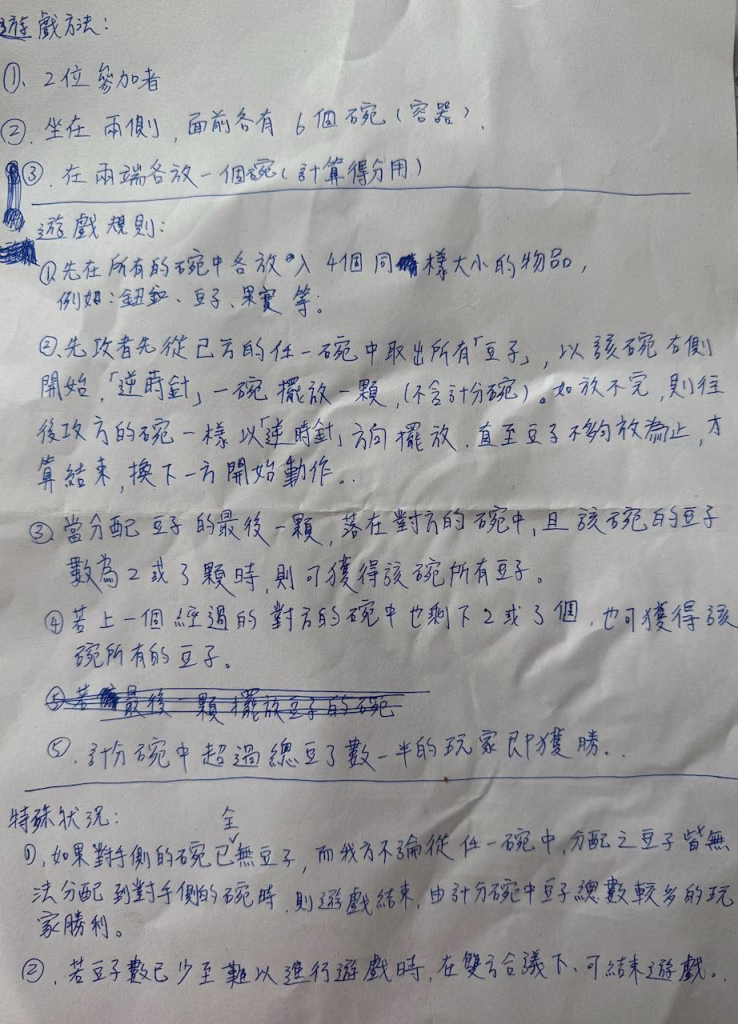 遊戲方法：
①、2位參加者
②. 坐在兩側，面前各有6個碗（容器）.
③. 在兩端各放一個碗（計算得分用）
遊戲規則：
①先在所有的碗中各放入4個同樣大小的物品，
例如：鈕釦、豆子、果實等。
②先攻者先從己方的任一碗中取出所有「豆子」，以該碗右側
開始，「逆時針」一碗擺放一顆，(不含計分碗)。如放不完，則往
後攻方的碗一樣以「逆時針」方向擺放．直至豆子不夠放為止，才
算結束，換下一方開始動作..
③當分配豆子的最後一顆，落在對方的碗中，且該碗的豆子
數為2或3顆時，則可獲得該碗所有豆子。
④若上一個經過的對方的碗中也剩下2或3個，也可獲得該
碗所有的豆子。
⑤若 最後一顆擺放豆子的碗
⑤. 計分碗中超過總豆子數一半的玩家即獲勝..
特殊狀況：
①, 如果對手側的碗已全無豆子，而我方不論從任一碗中，分配之豆子皆無
法分配到對手側的碗時，則遊戲結束，由計分碗中豆子總數較多的玩
家勝利。
②. 若豆子數已少至難以進行遊戲時，在雙方合議下、可結束遊戲..